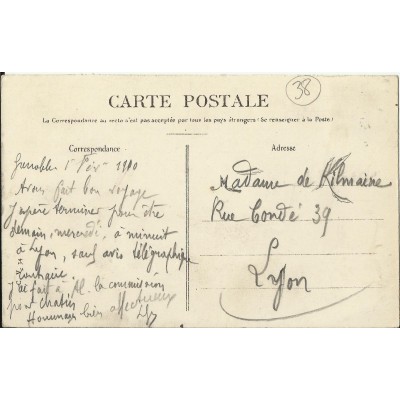 38
CARTE POSTALE
La Correspondance au recto n'est pas acceptée par tous les pays étrangers (Se renseigner à la Poste)
Correspondance
Grenoble 1 Fév 1910
Avons fait bon voyage
J'espère terminer pour être
demain, mercredi, à minuit
à Lyon, sauf avis télégraphique
contraire
J'ai fait à M. la commission
pour
Hommages bien affectueux
Adresse
Madame de Kilmaine
Rue Condé 39
Lyon